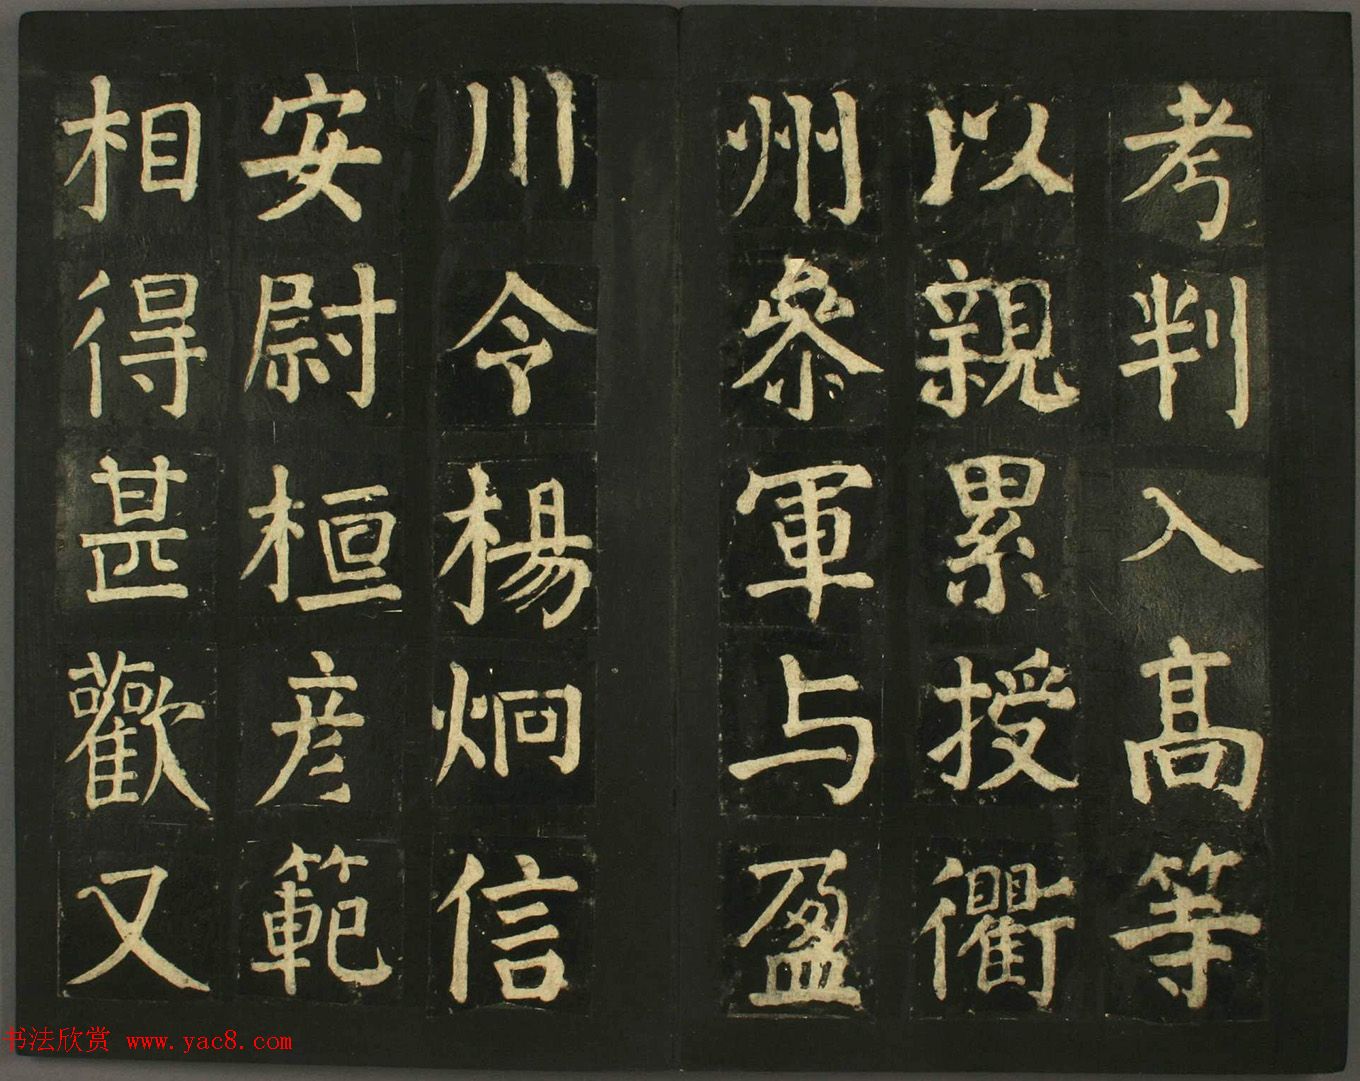 考判入高等
以親累授衢
州叅軍与盈
川令楊炯信
安尉桓彦範
相得甚歡又
书法欣赏 www.yac8.com